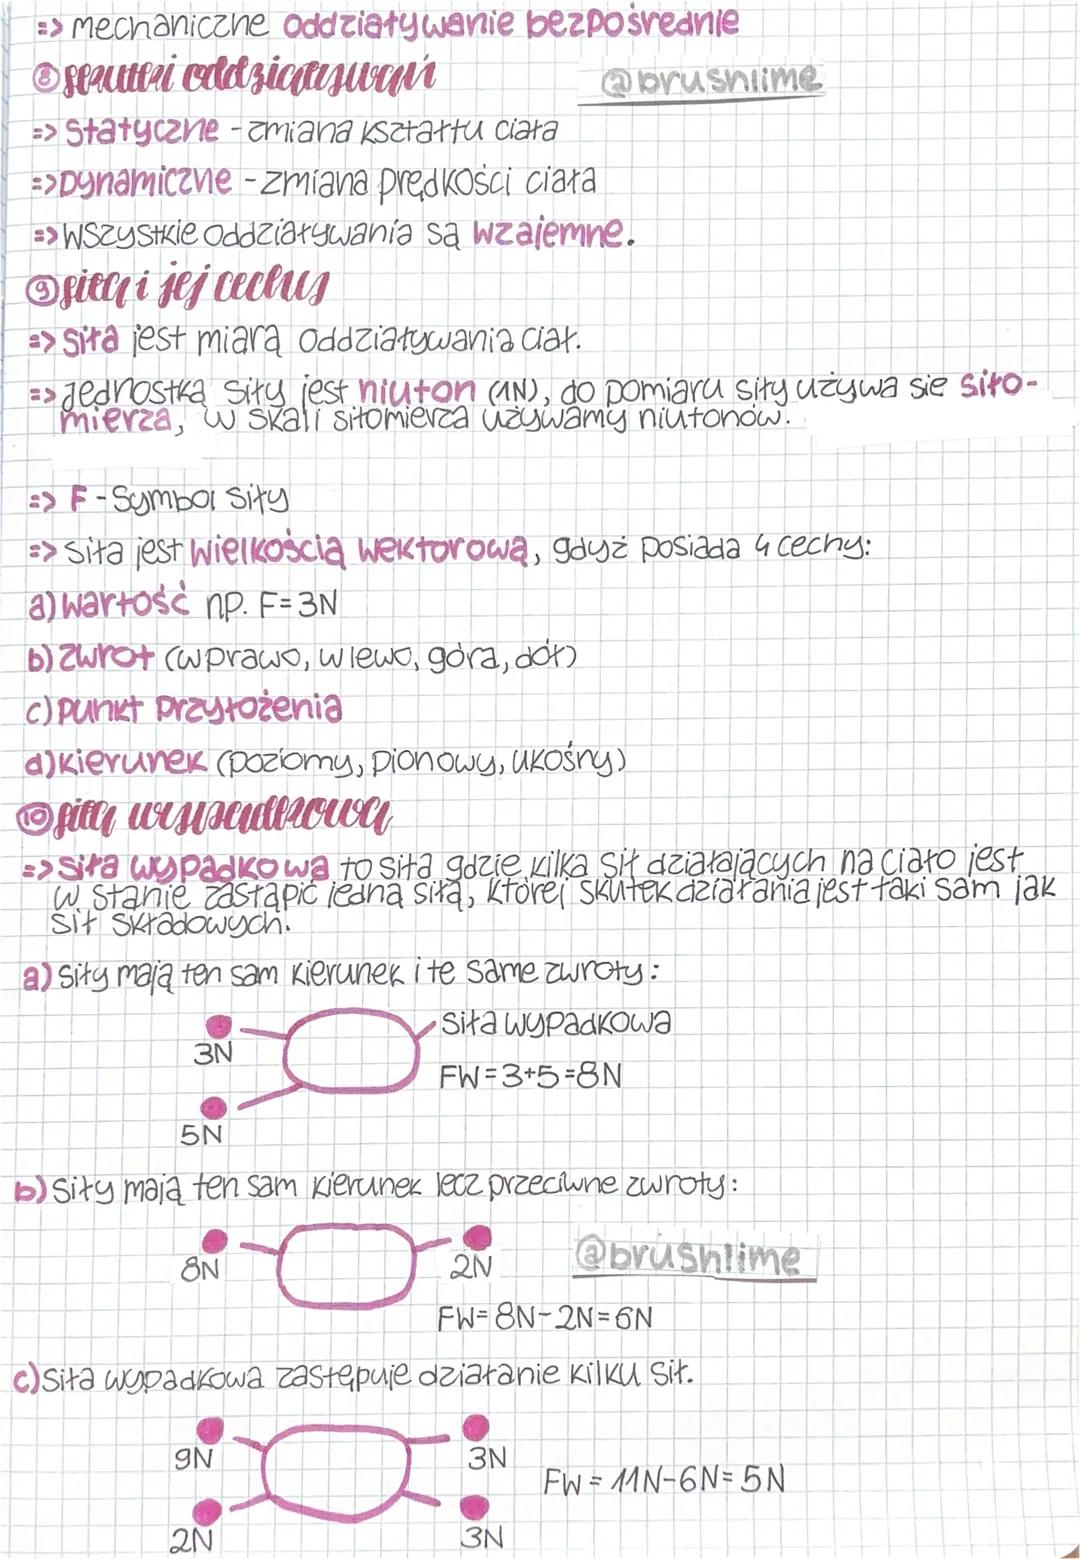 => mechaniczne oddziaływanie bezpośrednie
⑧ skutki oddziaływań
@brushlime
=> Statyczne - zmiana kształtu ciała
=> Dynamiczne - zmiana prędkości ciała
=> Wszystkie oddziaływania są wzajemne.
⑨ siła i jej cechy
=> Siła jest miarą oddziaływania ciał.
=> Jednostką siły jest niuton (1N), do pomiaru siły używa sie siło-
mierza, w skali siłomierza używamy niutonów.
=> F - Symbol siły
=> Siła jest wielkością wektorową, gdyż posiada 4 cechy:
a) wartość np. F=3N
b) zwrot (w prawo, w lewo, góra, dół)
c) punkt przyłożenia
d) kierunek (poziomy, pionowy, ukośny)
⑩ siła wypadkowa
=> Siła wypadkowa to siła gdzie kilka sił działających na ciało jest
w stanie zastąpić jedną siłą, której skutek działania jest taki sam jak
sił składowych.
a) Siły mają ten sam kierunek i te same zwroty:
Siła wypadkowa
3N
FW=3+5=8N
5N
b) Siły mają ten sam kierunek lecz przeciwne zwroty:
8N 2N
@brushlime
FW=8N-2N=6N
c) Siła wypadkowa zastępuje działanie kilku sił.
9N 3N
FW = 11N-6N=5N
2N 3N